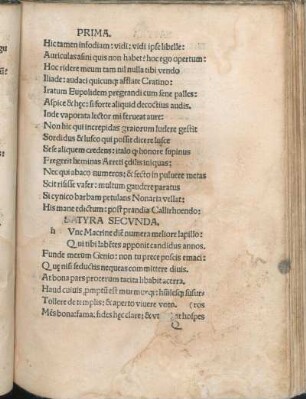 PRIMA.
Hic tamen infodium: vidi: vidi ipse libelle:
Auriculas asini quis non habet: hoc ego opertum:
Hoc ridere meum tam nil nulla tibi vendo
Iliade: audaci quicunqz afflate Cratino:
Iratum Eupolidem pregrandi cum sene palles:
Aspice & hęc: si forte aliquid decoctius audis.
Inde vaporata lector mi ferueat aure:
Non hic qui in crepidas graiorum ludere gestit
Sordidus & lusco qui possit dicere lusce
Sese aliquem credens: italo q honore supinus
Fregerit heminas Areti ędilis iniquas:
Nec qui abaco numeros: & secto in puluere metas
Scit risisse vafer: multum gaudere paratus
Si cynico barbam petulans Nonaria vellat:
His mane edictum: post prandia Callirhoen do:
SATYRA SECVNDA.
h Vnc Macrine diē numera meliore lapillo:
Qui tibi labētes apponit candidus annos.
Funde merum Genio: non tu prece poscis emaci:
Quę nisi seductis nequeas committere diuis.
At bona pars procerum tacita libabit acerra.
Haud cuiuis
Tollere de templis: & aperto viuere voto.
Mēs bona: fama: fides hęc clare: & hospes
Q